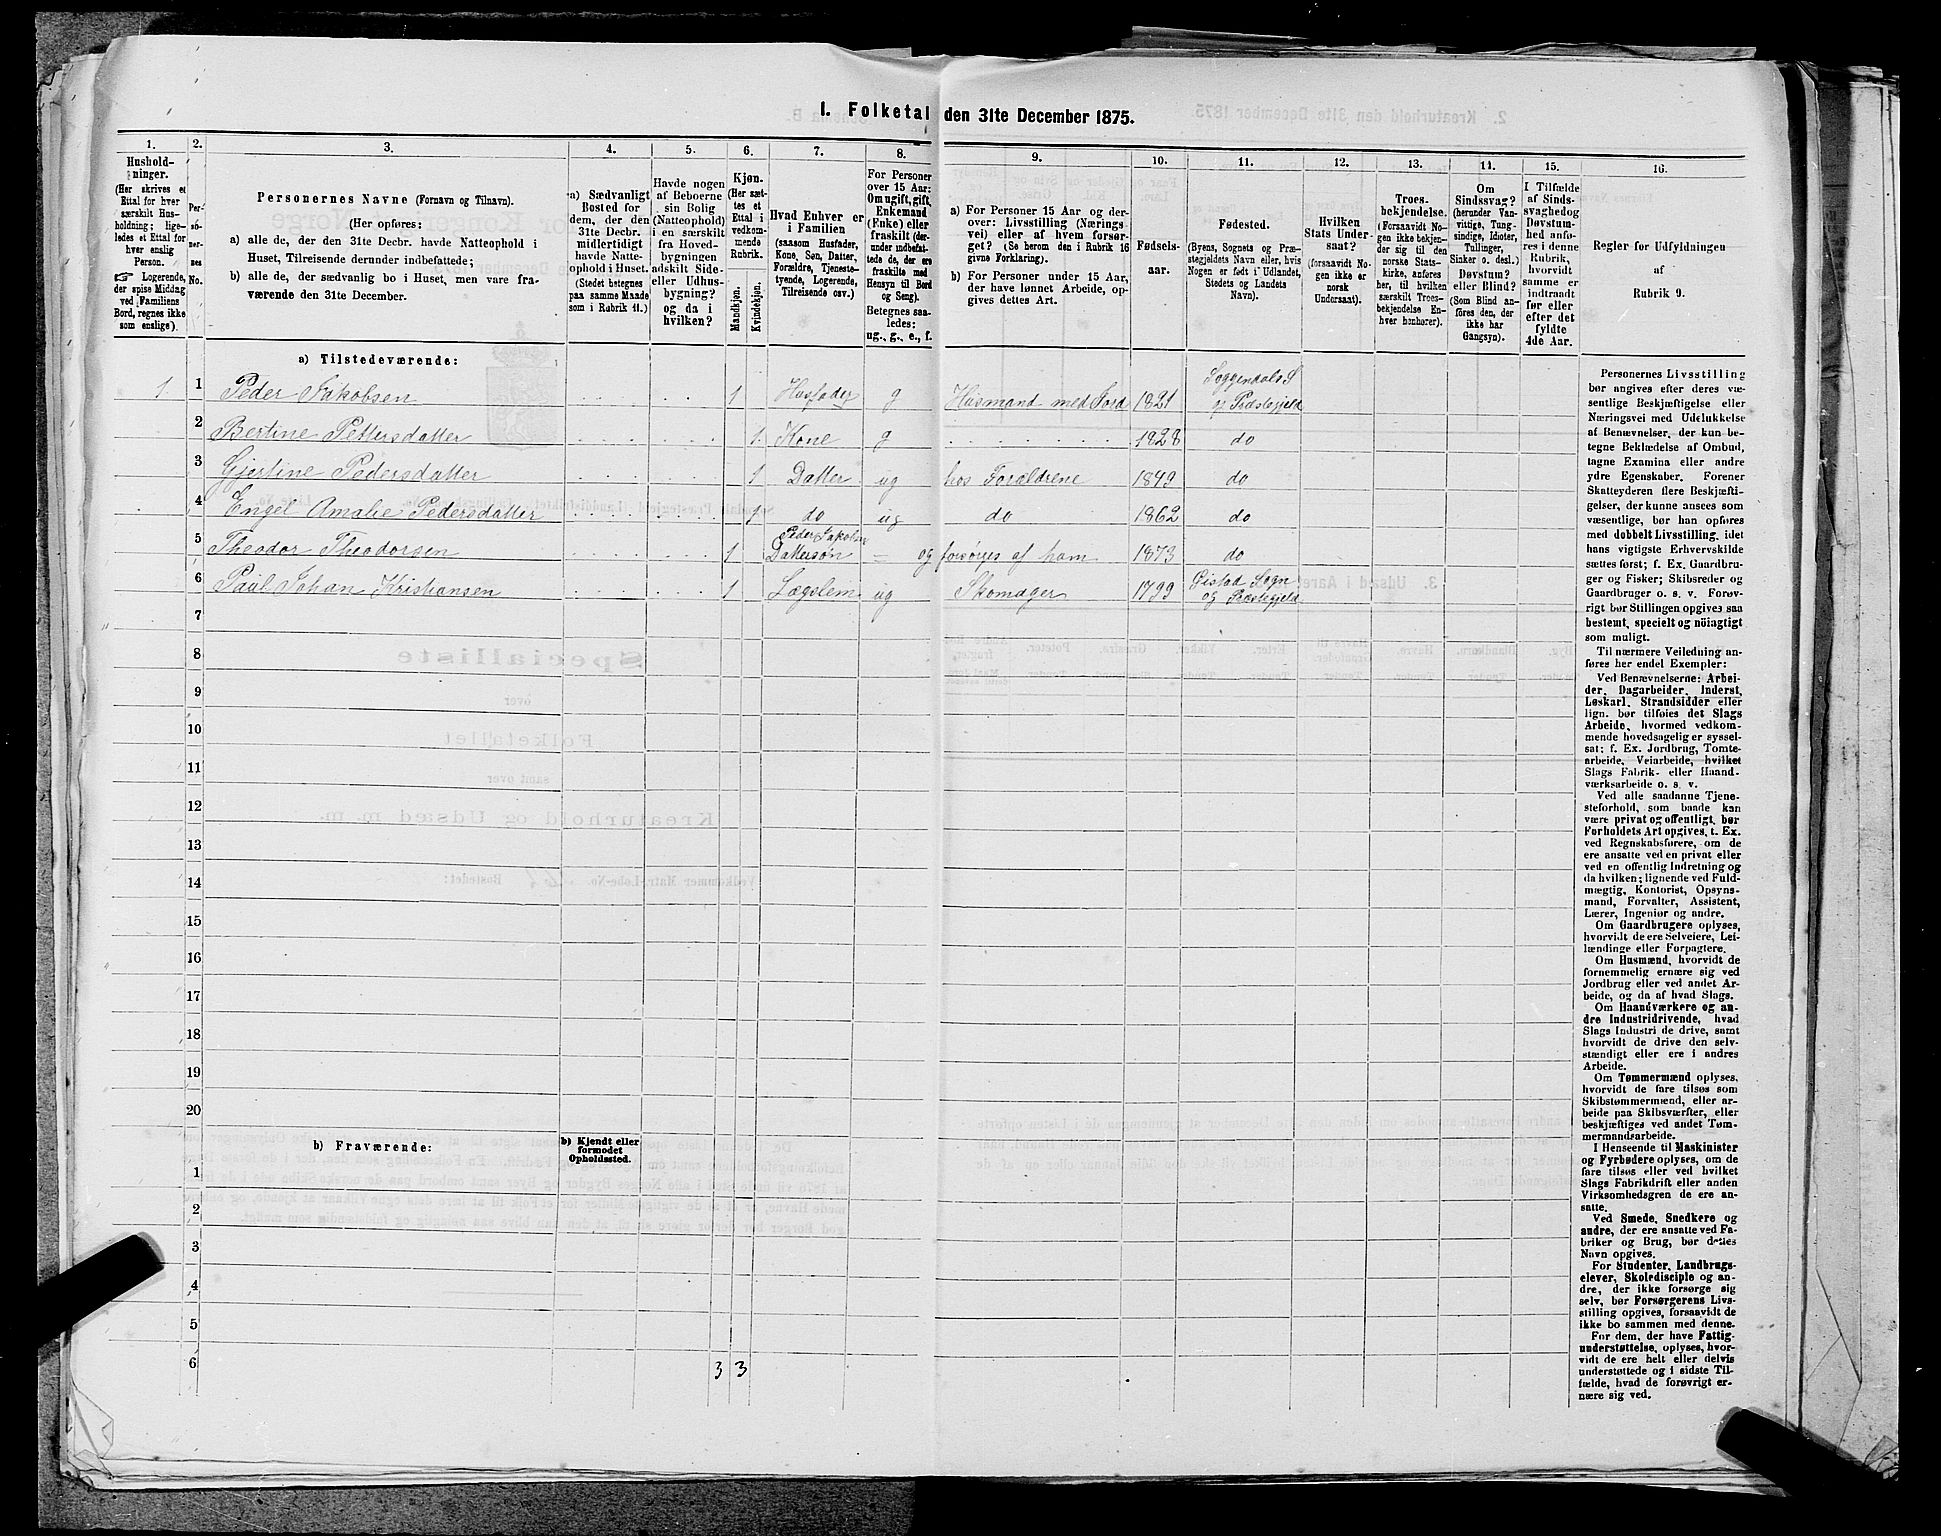 I. Folketal den 31te December 1875.
1. 2. 3. 4. 5. 6. 7. 8. 9. 10. 11. 12. 13. 14. 15. 16.
Hushold-
ninger.
(Her skrives et
Ettal for hver
særskilt Hus-
holdning; lige-
ledes et Ettal for
hver enslig
Person.
☞ Logerende,
der spise Middag
ved Familiens
Bord, regnes ikke
som enslige).
Per-
so-
ner-
nes
No.
Personernes Navne (Fornavn og Tilnavn).
(Her opføres:
a) alle de, der den 31te Decbr. havde Natteophold i
Huset, Tilreisende derunder indbefattede;
b) alle de, der sædvanlig bo i Huset, men vare fra-
værende den 31te December.
a) Sædvanligt
Bosted for
dem, der den
31te Decbr.
midlertidigt
havde Natte-
ophold i Huset.
(Stedet betegnes
paa samme Maade
som i Rubrik 11.)
Havde nogen
af Beboerne
sin Bolig
(Natteophold)
i en særskilt
fra Hoved-
bygningen
adskilt Side-
eller Udhus-
bygning?
og da i
hvilken?
Kjøn.
(Her sæt-
tes et
Ettal i
vedkom-
mende
Rubrik.
Mandkjøn.
Kvindekjøn.
Hvad Enhver er
i Familien
(saasom Husfader,
Kone, Søn, Datter,
Forældre, Tjeneste-
tyende, Logerende,
Tilreisende osv.)
For Personer
over 15 Aar:
Om ugift, gift,
Enkemand
(Enke) eller
fraskilt (der-
under indbefat-
tede de, der ere
fraskilte med
Hensyn til Bord
og Seng).
Betegnes saa-
ledes:
ug., g., e., f.
a) For Personer 15 Aar og der-
over: Livsstilling (Nærings-
vei) eller af hvem forsør-
get? (Se herom den i Rubrik 16
givne Forklaring).
b) For Personer under 15 Aar,
der have lønnet Arbeide, op-
gives dettes Art.
Fødsels-
aar.
Fødested.
(Byens, Sognets og Præ-
stegjeldets Navn eller, hvis
Nogen er født i Udlandet,
Stedets og Landets
Navn).
Hvilken
Stats Under-
saat?
(forsaavidt No-
gen ikke er
norsk
Undersaat).
Troes-
bekjendelse.
(Forsaavidt No-
gen ikke bekjen-
der sig til den
norske Stats-
kirke, anføres
her, til hvilken
særskilt Troes-
bekjendelse En-
hver henhører).
Om
Sindssvag?
(herunder Van-
vittige, Tung-
sindige, Idioter,
Tullinger,
Sinker o. desl.)
Døvstum?
eller Blind?
(Som Blind an-
føres den, der
ikke har
Gangsyn).
I Tilfælde
af Sinds-
svaghed og
Døvstum-
hed anfø-
res i denne
Rubrik,
hvorvidt
samme er
indtraadt
før eller
efter det
fyldte
4de Aar.
Regler for Udfyldningen
af
Rubrik 9.
a) Tilstedeværende:
1 1 Peder Jakobsen 1 Husfader g Husmand med Jord 1821 Soggendals S og Præstegjeld
2 Bertine Pettersdatter 1 Kone g 1828 do
3 Gjertine Pedersdatter 1 Datter ug hos Forældrene 1849 do
4 Engel Amalie Pedersdatter 1 do ug do 1862 do
5 Theodor Theodorsen 1 Peder Jakobsn Dattersøn – og forsørges af ham 1873 do
6 Paul Johan Kristiansen 1 Lægslem ug Skomager 1799 Sogn og Præstegjeld
7
8
9
10
11
12
13
14
15
16
17
18
19
20
b) Fraværende:
b) Kjendt eller
formodet
Opholdssted.
1
2
3
4
5
6
3 3
Personernes Livsstilling
bør angives efter deres væ-
sentlige Beskjæftigelse eller
Næringsvei med Udelukkelse
af Benævnelser, der kun be-
tegne Beklædelse af Ombud,
tagne Examina eller andre
ydre Egenskaber. Forener
Skatteyderen flere Beskjæfti-
gelser, der kunne ansees som
væsentlige, bør han opføres
med dobbelt Livsstilling, idet
hans vigtigste Erhvervskilde
sættes først; f. Ex. Gaardbru-
ger og Fisker; Skibsreder og
Gaardbruger o. s. v. Forøv-
rigt bør Stillingen opgives saa
bestemt, specielt og nöiagtigt
som muligt.
Til nærmere Veiledning an-
føres her endel Exempler:
Ved Benævnelserne: Arbei-
der, Dagarbeider, Inderst,
Løskarl, Strandsidder eller
lign. bør tilføies det Slags
Arbeide, hvormed vedkom-
mende hovedsagelig er syssel-
sat; f. Ex. Jordbrug, Tomte-
arbeide, Veiarbeide, hvilket
Slags Fabrik- eller Haand-
værksarbeide o. s. v.
Ved alle saadanne Tjene-
steforhold, som baade kan
være privat og offentligt, bør
Forholdets Art opgives, t. Ex.
ved Regnskabsførere, om de
ere ansatte ved en privat eller
ved en offentlig Indretning og
da hvilken; lignende ved Fuld-
mægtig, Kontorist, Opsyns-
mand, Forvalter, Assistent,
Lærer, Ingeniør og andre.
Om Gaardbrugere oplyses,
hvorvidt de ere Selveiere, Lei-
lændinge eller Forpagtere.
Om Husmænd, hvorvidt de
fornemmelig ernære sig ved
Jordbrug eller ved andet Ar-
beide, og da af hvad Slags.
Om Haandværkere og an-
dre Industridrivende, hvad
Slags Industri de drive, samt
hvorvidt de drive den selv-
stændigt eller ere i andres
Arbeide.
Om Tømmermænd oplyses,
hvorvidt de fare tilsøs som
Skibstømmermænd, eller ar-
beide paa Skibsværfter, eller
beskjæftiges ved andet Tøm-
mermandsarbeide.
I Henseende til Maskinister
og Fyrbødere oplyses, om de
fare tilsøs eller ved hvilket
Slags Fabrikdrift eller anden
Virksomhedsgren de ere an-
satte.
Ved Smede, Snedkere og
andre, der ere ansatte ved Fa-
briker og Brug, bør dettes
Navn opgives.
For Studenter, Landbrugs-
elever, Skoledisciple og an-
dre, der ikke forsørge sig
selv, bør Forsørgerens Livs-
stilling opgives, forsaavidt de
ikke bo sammen med denne.
For dem, der have Fattig-
understøttelse, oplyses, hvor-
vidt de ere helt eller delvis
understøttede og i sidste Til-
fælde, hvad de forøvrigt er-
nære sig ved.